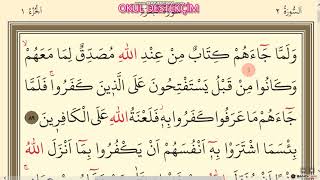 OKUL DESTEKÇİM
اَلسُّورَةُ ٢
اَلْجُزْءُ ١
وَلَمَّا جَٓاءَهُمْ كِتَابٌ مِنْ عِنْدِ اللّٰهِ مُصَدِّقٌ لِمَا مَعَهُمْۙ
وَكَانُوا مِنْ قَبْلُ يَسْتَفْتِحُونَ عَلَى الَّذٖينَ كَفَرُواۚ فَلَمَّا
جَٓاءَهُمْ مَا عَرَفُوا كَفَرُوا بِهٖؗ فَلَعْنَةُ اللّٰهِ عَلَى الْكَافِرٖينَ ٨٩
بِئْسَمَا اشْتَرَوْا بِهٖٓ اَنْفُسَهُمْ اَنْ يَكْفُرُوا بِمَٓا اَنْزَلَ اللّٰهُ